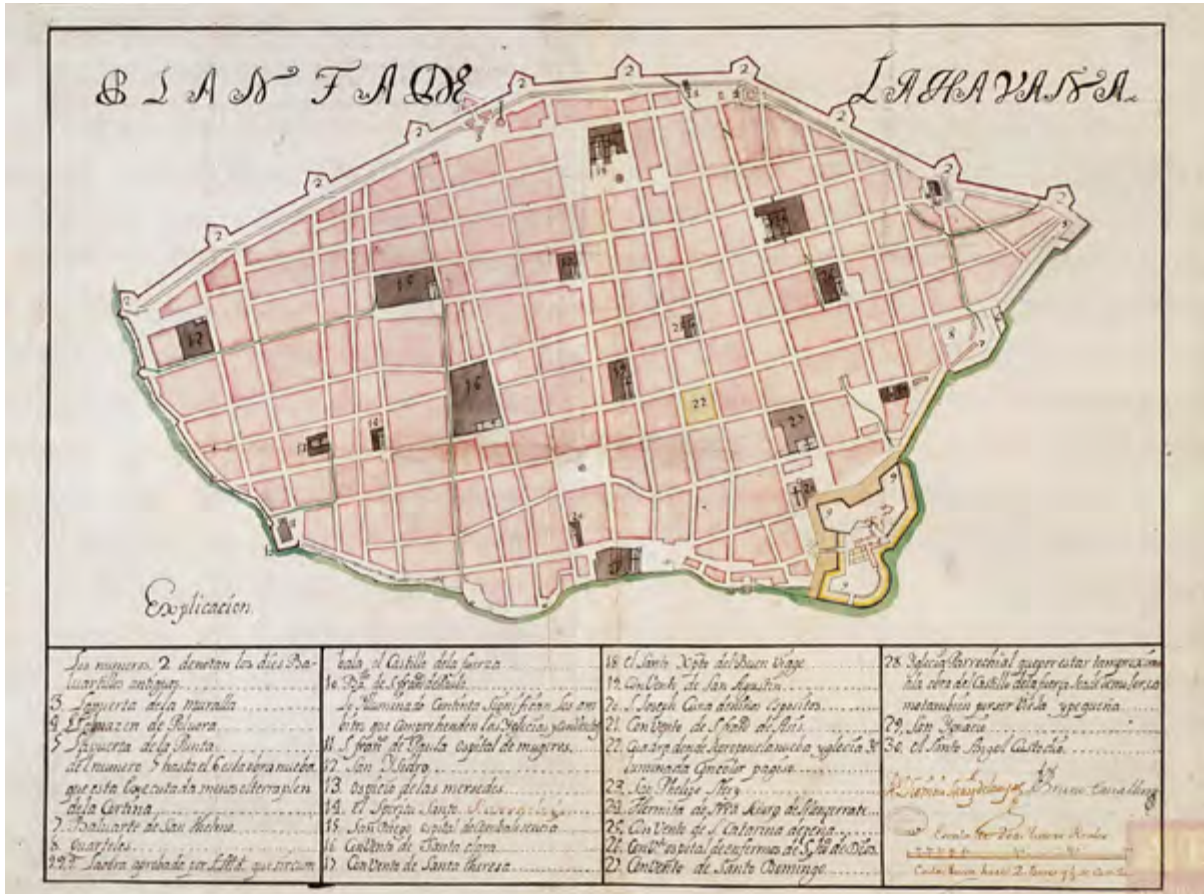 PLANTA DE LA HAVANA.
Explicacion.
Los numeros 2 denotan los dies Ba-
luartillos antiguos
3. La puerta de la muralla
4. El Almazen de Polvora
5. La puerta de la Punta
del numero 7 hasta el 6 es la obra nueba
que esta executada menos el terraplen
de la Cortina
7. Baluarte de San Thelmo
8. Quarteles
9.9.ª La obra aprobada por S.M.d. que circum
bala el Castillo de la fuerza
10. de S. fran.co de Paula
Lo Yluminado Continta significan los am-
bitos que comprehenden las Yglecias y Conventos
11. S. fran.co de Paula ospital de mugeres
12. San Ysidro
13. ospicio de las mersedes
14. el Spiritu Santo
15. San Diego ospital de Combalesencia
16. Convento de Santa clara
17. Convento de Santa theresa
18. el Santo Xpto del Buen Viage
19. Convento de San Agustin
20. S. Joseph Cuna de niños Espositos
21. Convento de S. fran.co de Asis
22. Quadra donde se propone la nueba yglecia Y
luminada Con color pagiso
23. San Phelipe Nery
24. Hermita de Nra. de Monserrate
25. Convento de S. Catarina de cena
26. Conv.to ospital de enfermos de S. Ju.o de Dios
27. Convento de Santo Domingo
28. Yglecia Parrochial que por estar tan proxima
a la obra del Castillo de la fuerza
tambien por ser Vieja y pequeña
29. San Ygnacio
30. el Santo Angel Custodio
Bruno Cavallero